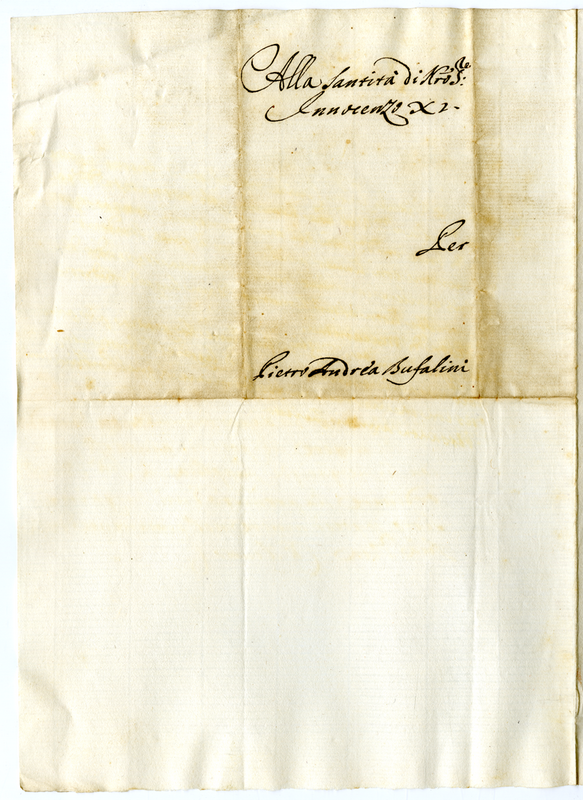 Alla Santità di Nrõ S.re
Innocenzo XI.
Per
Pietro Andrea Bufalini